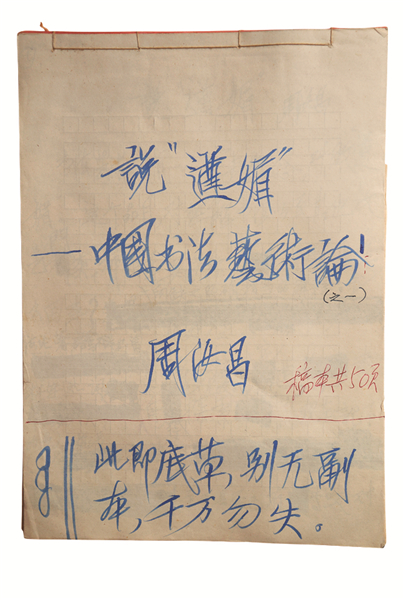 説“遒媚”
——中国书法藝術論！
（之一）
周汝昌
稿本共50页
此即底草，别无副
本，千万勿失。